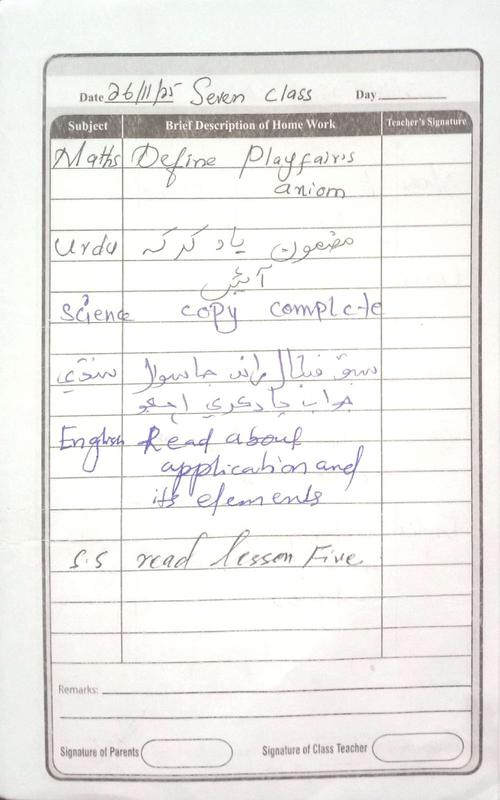 Date 26/11/25 Seven class Day
Subject Brief Description of Home Work Teacher's Signature
Maths Define Playfair's
aniom
Urdu مضمون یاد کر کہ
آئیں
Science copy complete
سنڌي سبق جا سوال
جواب ياد ڪري اچجو
English Read about
application and
its elements
S.S read lesson Five
Remarks:
Signature of Parents Signature of Class Teacher